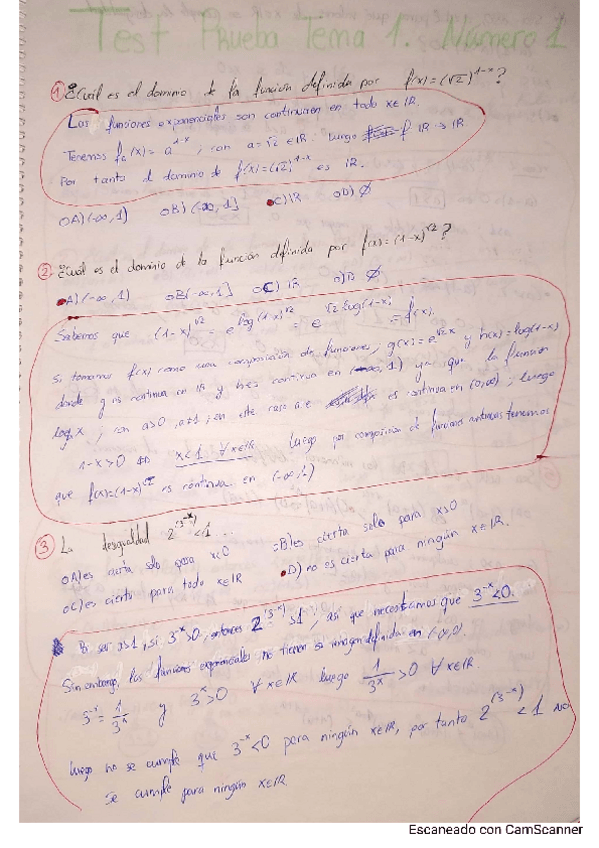 Test Prueba Tema 1. Número 1
① ¿Cuál es el dominio de la función definida por f(x)=(√2)^(1-x)?
Las funciones exponenciales son continuas en todo x∈ℝ.
Tenemos fₐ(x)= a^(1-x), con a=√2 ∈ℝ. Luego f ℝ→ℝ
Por tanto el dominio de f(x)=(√2)^(1-x) es ℝ.
○A)(-∞,1) ○B)(-∞,1] ●C)ℝ ○D)∅
② ¿Cuál es el dominio de la función definida por f(x)=(1-x)^√2?
●A)(-∞,1) ○B(-∞,1] ○C) ℝ ∅
Sabemos que (1-x)^√2 = e^(log(1-x)^√2) = e^(√2·log(1-x)) = f(x).
Si tomamos f(x) como una composición de funciones, g(x)=e^(√2x) y h(x)=log(1-x)
donde g es continua en ℝ y h es continua en (-∞,1) ya que la función
logₐx, con a>0, a≠1, en este caso a=e es continua en (0,∞), luego
1-x>0 ⇔ x<1 ∀x∈ℝ. Luego por composición de funciones entonces tenemos
que f(x)=(1-x)^√2 es continua en (-∞,1)
③ La desigualdad 2^(3^-x)<1...
○A)es cierta solo para x<0 ○B)es cierta solo para x>0
○C)es cierta para todo x∈ℝ ●D) no es cierta para ningún x∈ℝ.
ser a>1, si 3^-x>0, entonces 2^(3^-x)>1, así que necesitamos que 3^-x<0.
Sin embargo, las funciones exponenciales no tienen su imagen definida en (-∞,0).
3^-x = 1/3^x y 3^x>0 ∀x∈ℝ luego 1/3^x >0 ∀x∈ℝ.
Luego no se cumple que 3^-x<0 para ningún x∈ℝ, por tanto 2^(3^-x) < 1 no
se cumple para ningún x∈ℝ.
Escaneado con CamScanner